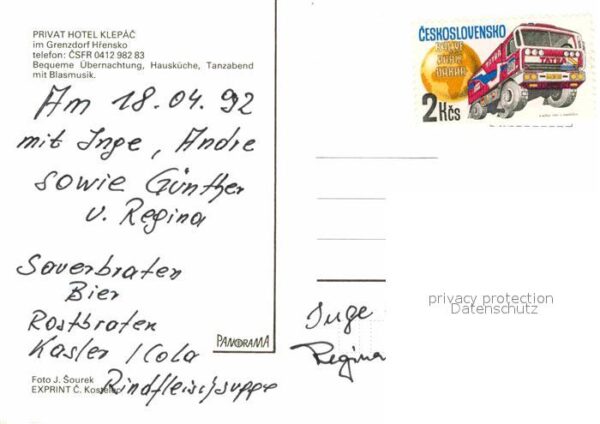 PRIVAT HOTEL KLEPÁČ
im Grenzdorf Hřensko
telefon: ČSFR 0412 982 83
Bequeme Übernachtung, Hausküche, Tanzabend
mit Blasmusik.
Am 18.04.92
mit Inge, Andre
sowie Günther
u. Regina
Sauerbraten
Bier
Rostbraten
Kasler / Cola
Rindfleischsuppe
Foto J. Šourek
EXPRINT Č.
PANORAMA
ČESKOSLOVENSKO
RALLYE
DAKAR
TATRA
2 Kčs
Inge
Regina
privacy protection
Datenschutz